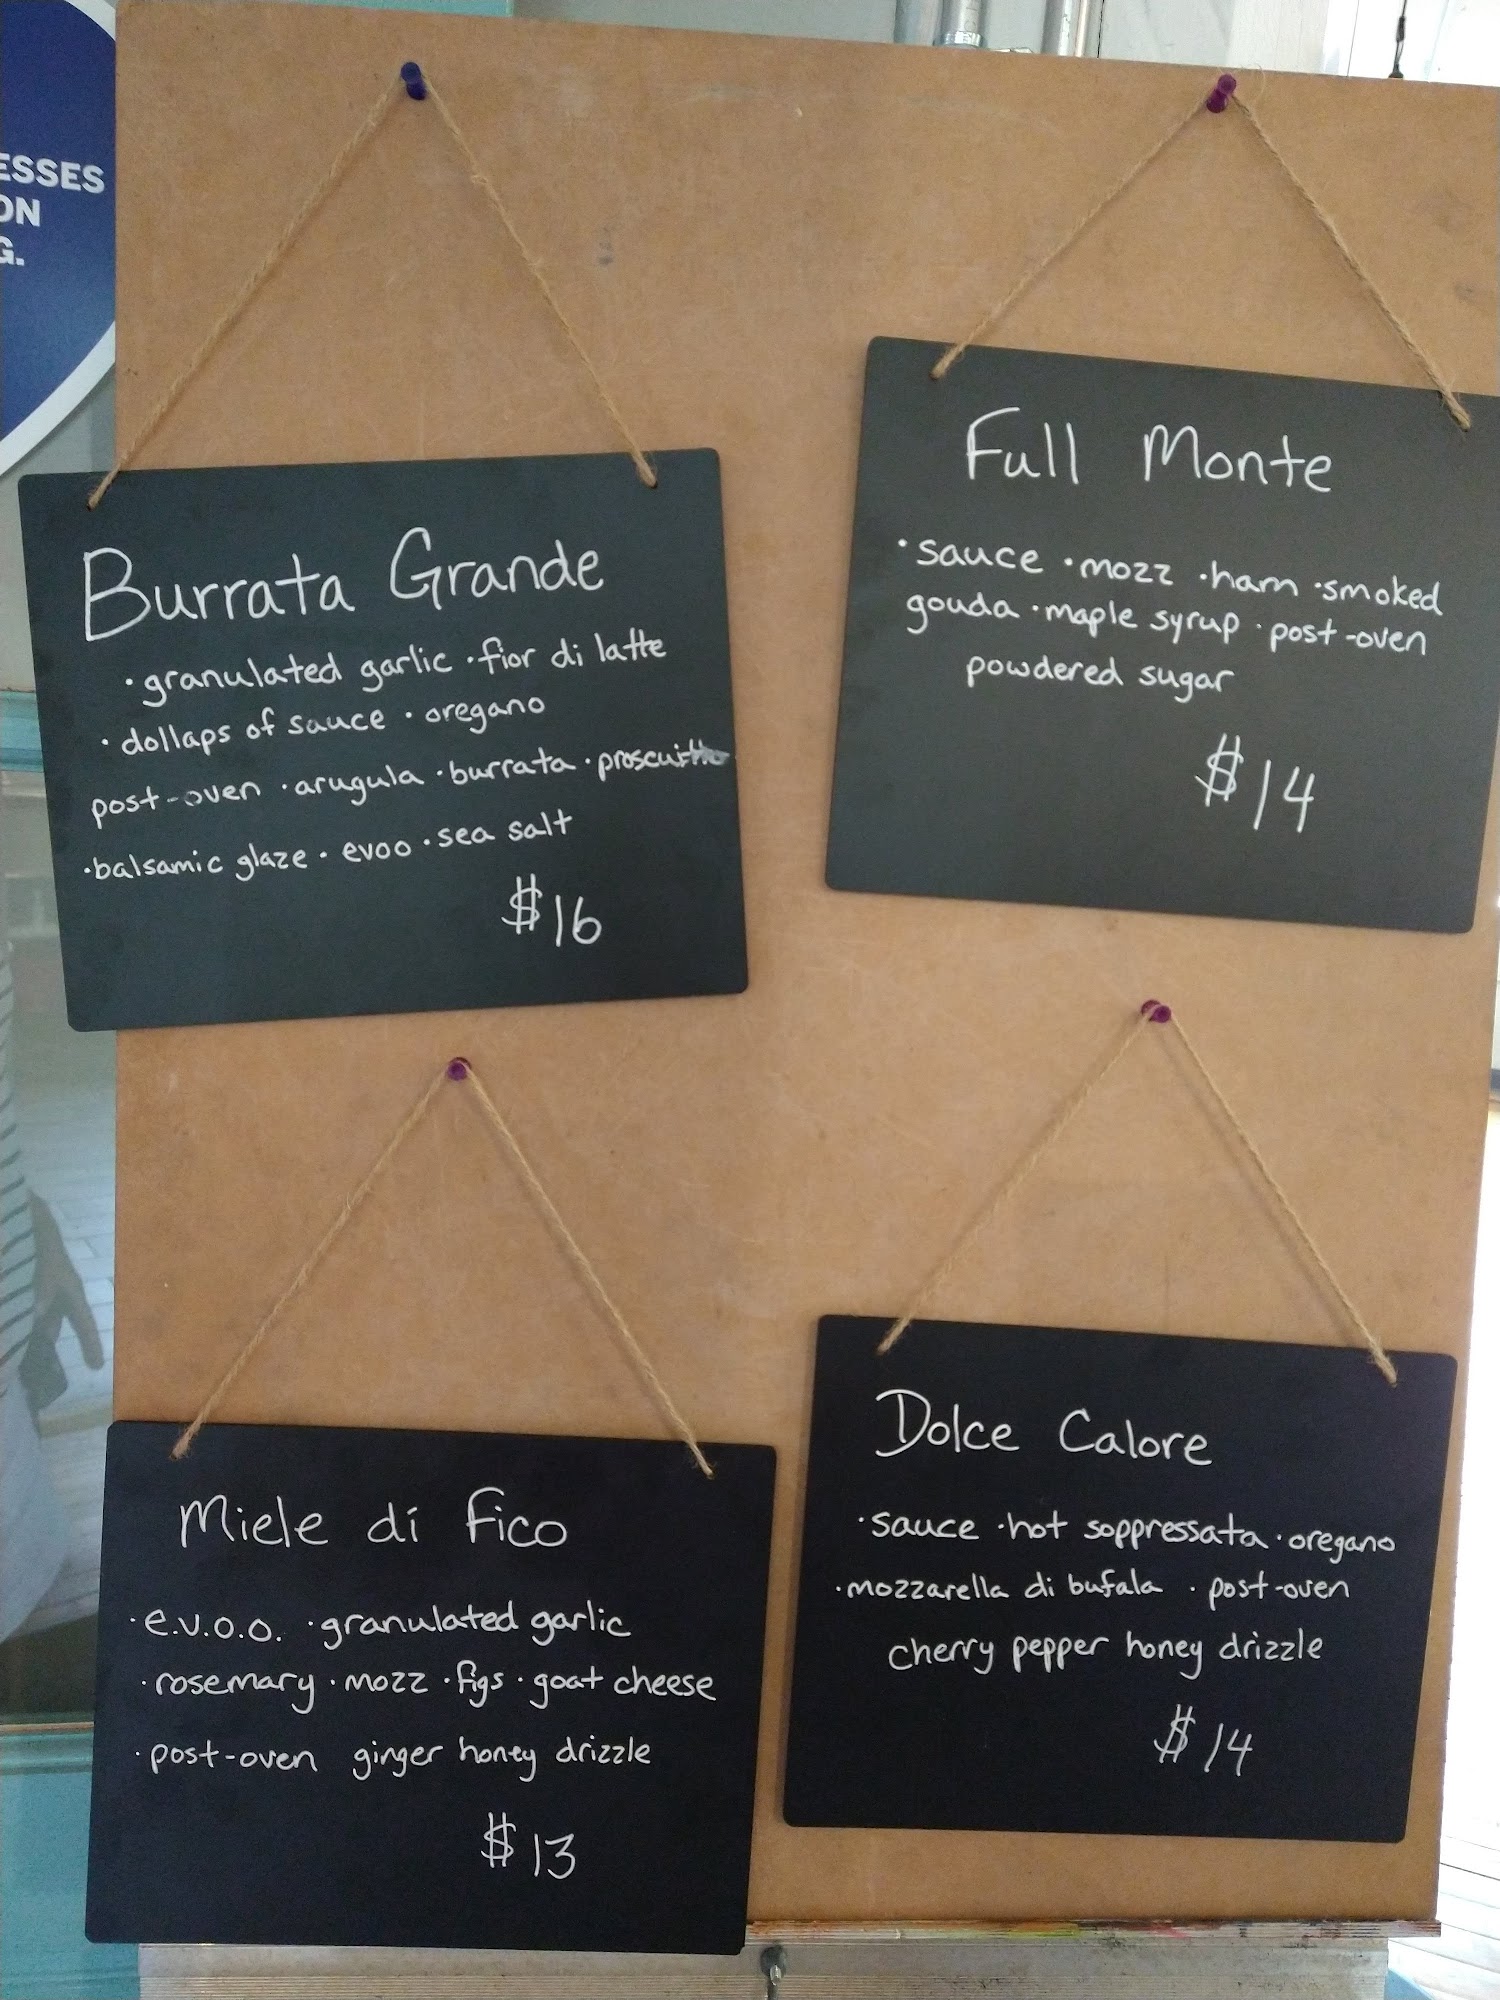 ESSES
ON
G.
Burrata Grande
· granulated garlic · fior di latte
· dollaps of sauce · oregano
post-oven · arugula · burrata · proscuitto
· balsamic glaze · evoo · sea salt
$16
Full Monte
· sauce · mozz · ham · smoked
gouda · maple syrup · post-oven
powdered sugar
$14
Miele di Fico
· e.v.o.o. · granulated garlic
· rosemary · mozz · figs · goat cheese
· post-oven ginger honey drizzle
$13
Dolce Calore
· sauce · hot soppressata · oregano
· mozzarella di bufala · post-oven
cherry pepper honey drizzle
$14